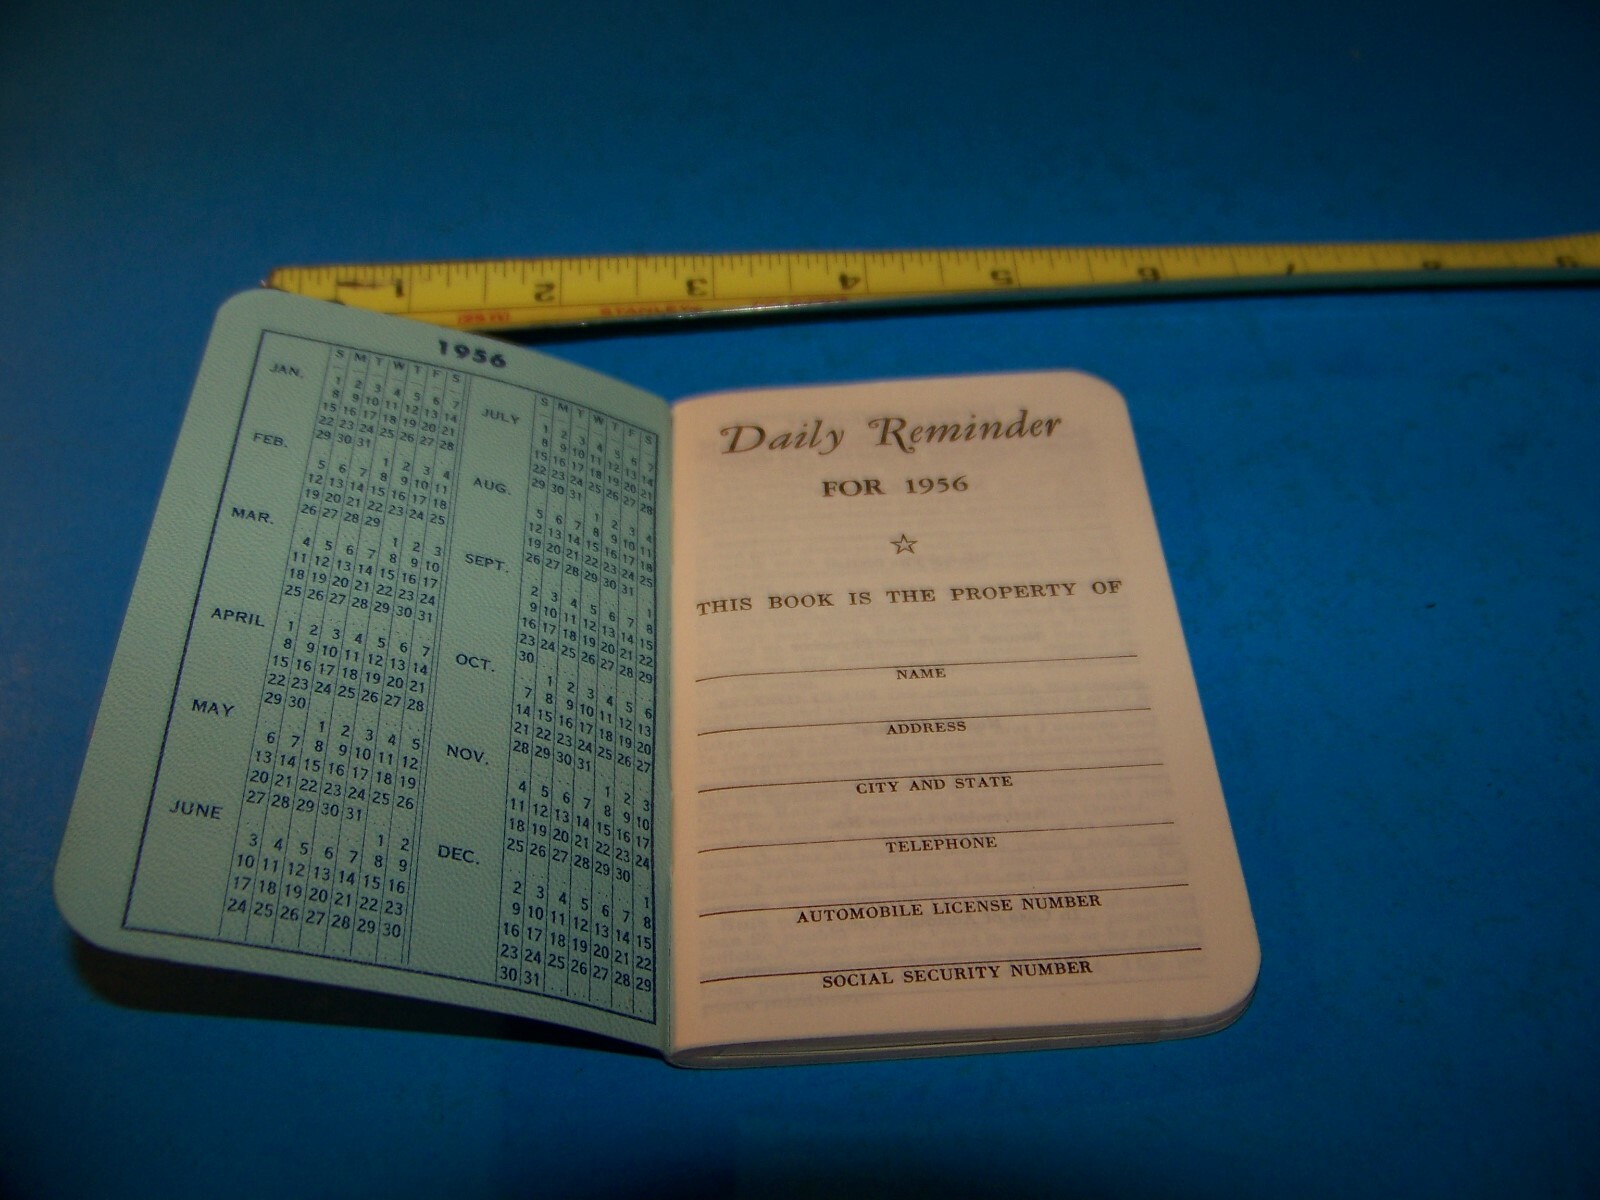 1 2 3 4 5 6 7 8 9
STANLEY
1956
S M T W T F S
JAN.
1 2 3 4 5 6 7
8 9 10 11 12 13 14
15 16 17 18 19 20 21
22 23 24 25 26 27 28
29 30 31
FEB.
1 2 3 4
5 6 7 8 9 10 11
12 13 14 15 16 17 18
19 20 21 22 23 24 25
26 27 28 29
MAR.
1 2 3
4 5 6 7 8 9 10
11 12 13 14 15 16 17
18 19 20 21 22 23 24
25 26 27 28 29 30 31
APRIL
1 2 3 4 5 6 7
8 9 10 11 12 13 14
15 16 17 18 19 20 21
22 23 24 25 26 27 28
29 30
MAY
1 2 3 4 5
6 7 8 9 10 11 12
13 14 15 16 17 18 19
20 21 22 23 24 25 26
27 28 29 30 31
JUNE
1 2
3 4 5 6 7 8 9
10 11 12 13 14 15 16
17 18 19 20 21 22 23
24 25 26 27 28 29 30
S M T W T F S
JULY
1 2 3 4 5 6 7
8 9 10 11 12 13 14
15 16 17 18 19 20 21
22 23 24 25 26 27 28
29 30 31
AUG.
1 2 3 4
5 6 7 8 9 10 11
12 13 14 15 16 17 18
19 20 21 22 23 24 25
26 27 28 29 30 31
SEPT.
1
2 3 4 5 6 7 8
9 10 11 12 13 14 15
16 17 18 19 20 21 22
23 24 25 26 27 28 29
30
OCT.
1 2 3 4 5 6
7 8 9 10 11 12 13
14 15 16 17 18 19 20
21 22 23 24 25 26 27
28 29 30 31
NOV.
1 2 3
4 5 6 7 8 9 10
11 12 13 14 15 16 17
18 19 20 21 22 23 24
25 26 27 28 29 30
DEC.
1
2 3 4 5 6 7 8
9 10 11 12 13 14 15
16 17 18 19 20 21 22
23 24 25 26 27 28 29
30 31
Daily Reminder
FOR 1956
THIS BOOK IS THE PROPERTY OF
NAME
ADDRESS
CITY AND STATE
TELEPHONE
AUTOMOBILE LICENSE NUMBER
SOCIAL SECURITY NUMBER